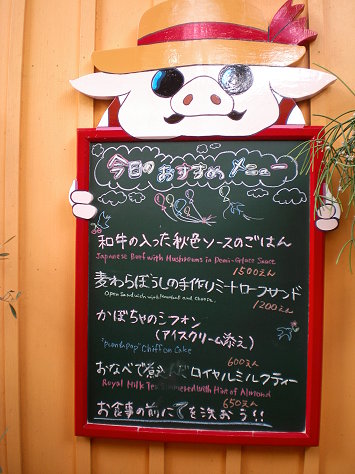 今日のおすすめメニュー
和牛の入った秋色ソースのごはん
Japanese Beef with Mushrooms in Demi-Glace Sauce
1500えん
麦わらぼうしの手作りミートローフサンド
Open Sandwich with Meatloaf and Cheese.
1200えん
かぼちゃのシフォン
(アイスクリーム添え)
Chiffon Cake
600えん
おなべで煮込んだロイヤルミルクティー
Royal Milk Tea Simmered with Hint of Almond
650えん
お食事の前にてを洗おう!!